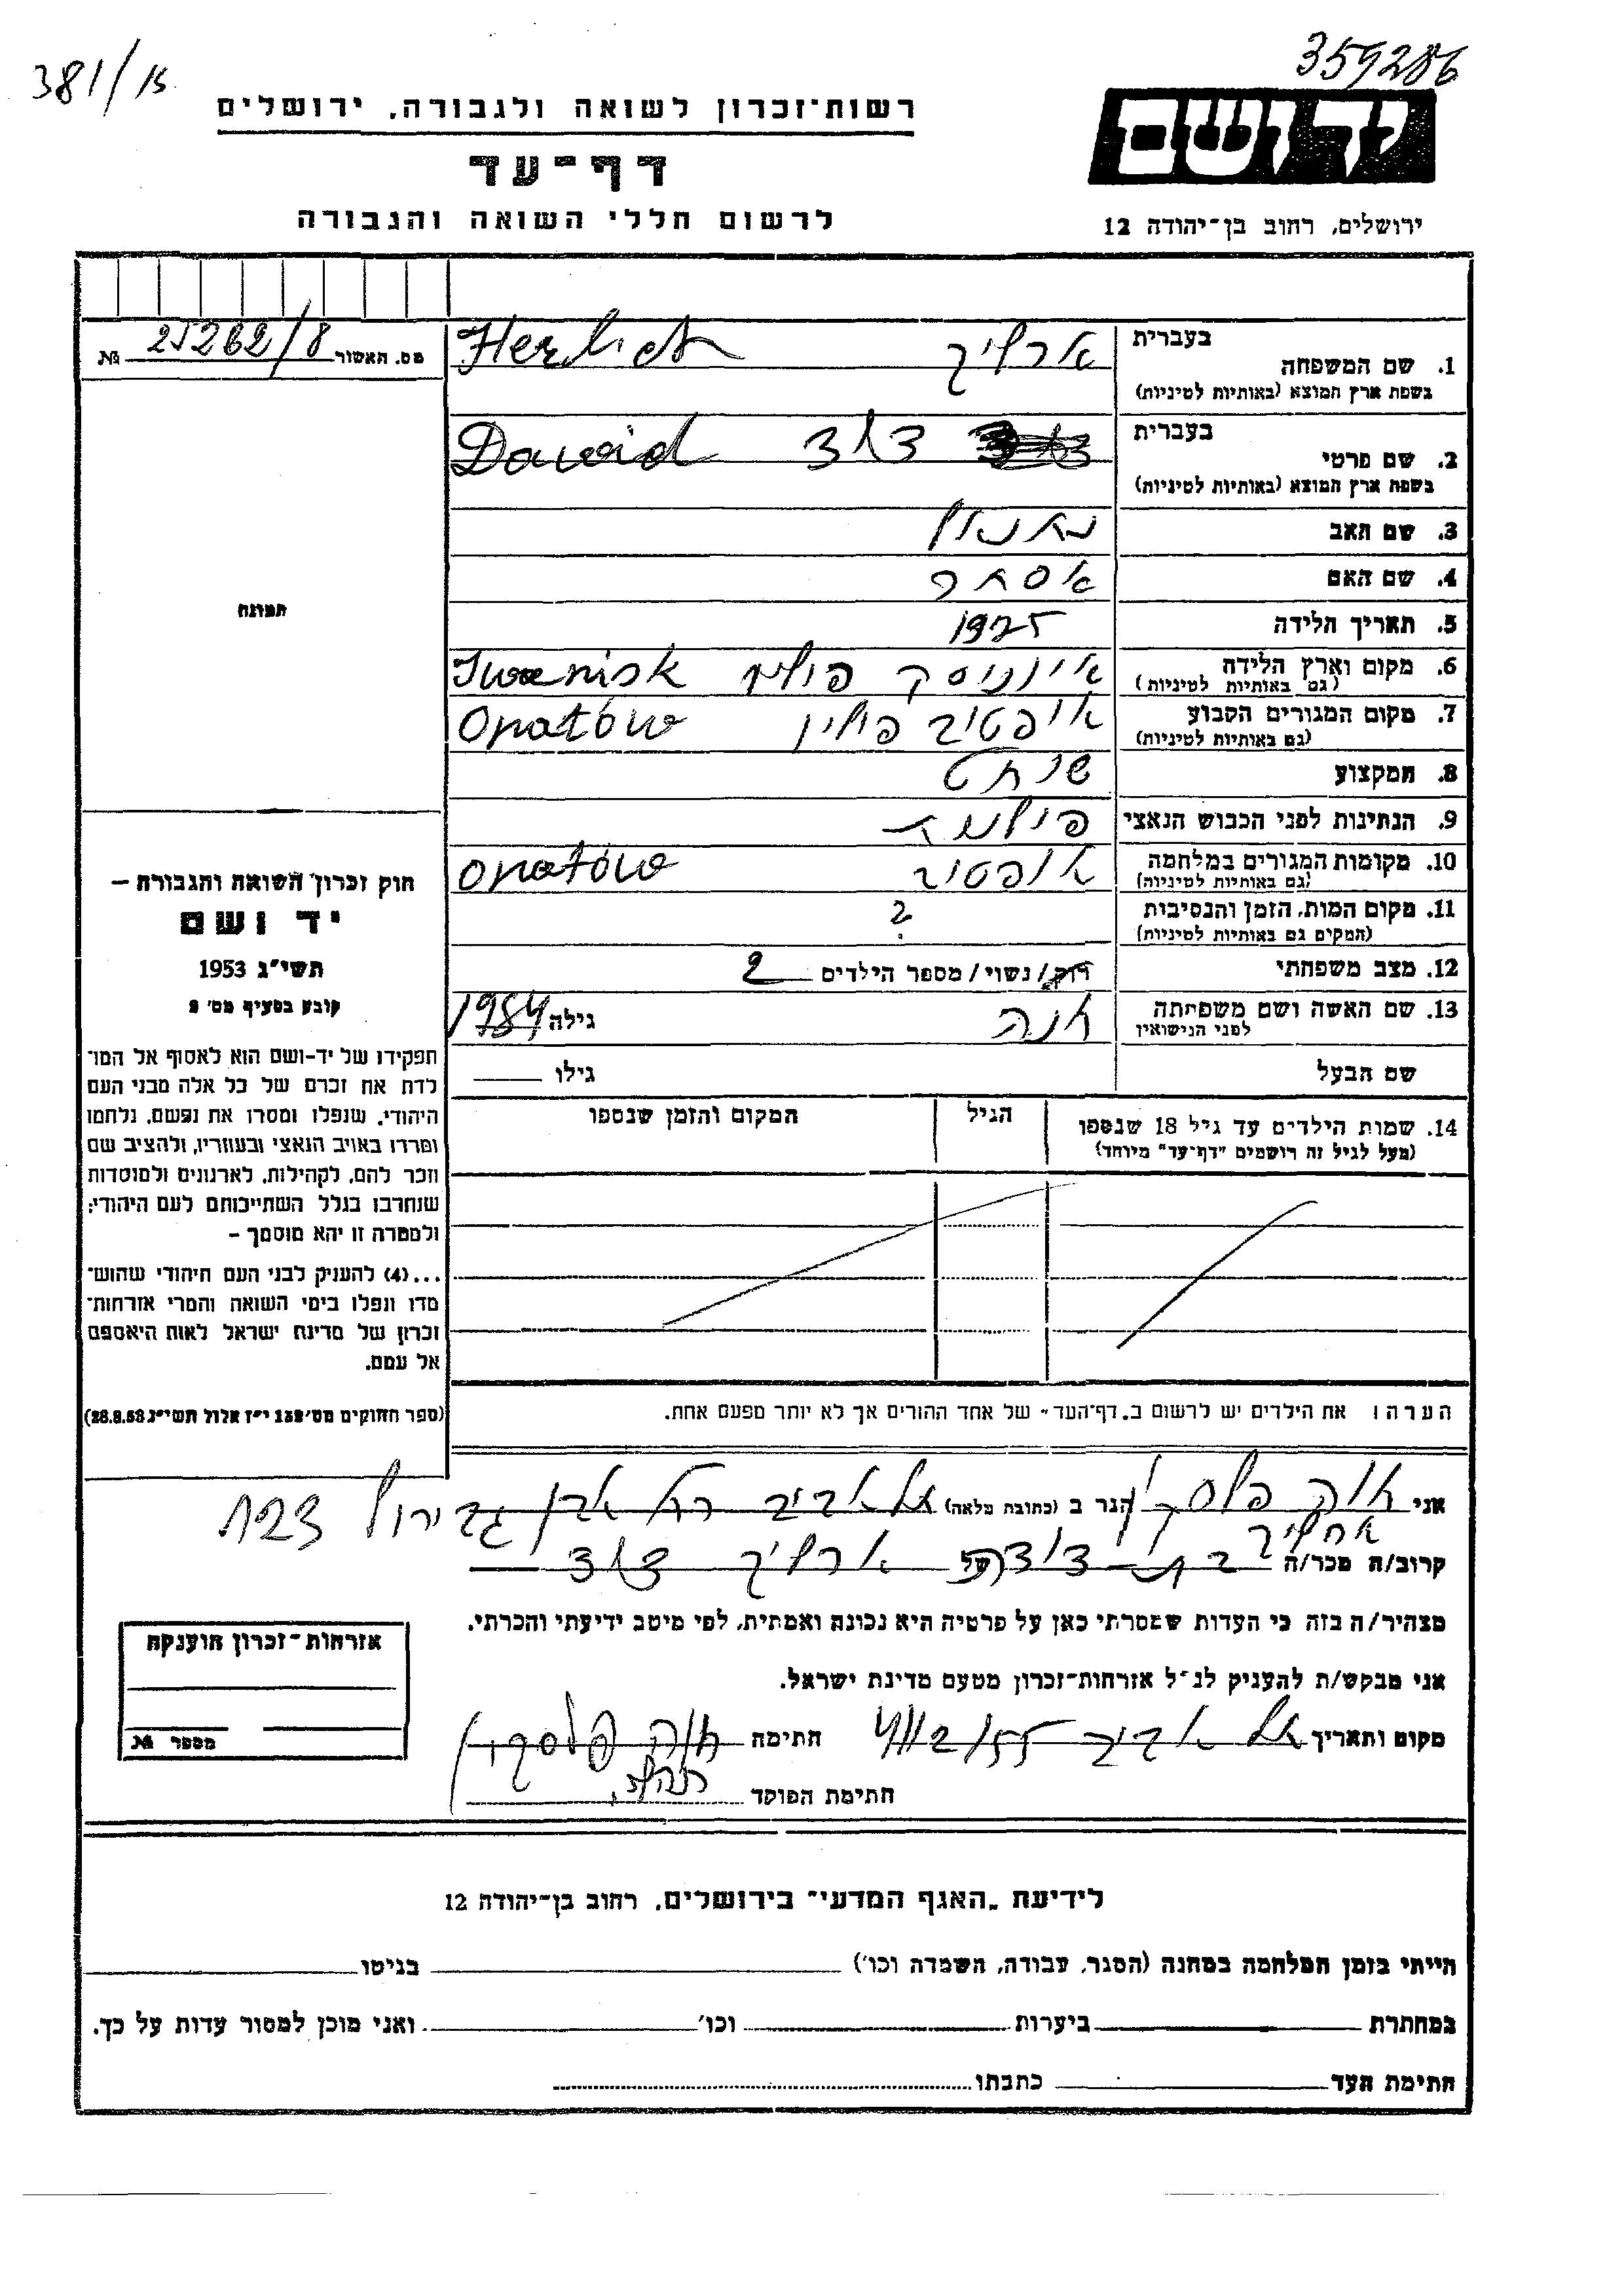 359286
381/15
רשות־זכרון לשואה ולגבורה, ירושלים
יד ושם
דף־עד
לרשום חללי השואה והגבורה
ירושלים, רחוב בן־יהודה 12
מס. תאשור № 25262/8
בעברית
1. שם המשפחה
בשפת ארץ המוצא (באותיות לטיניות)
ארליך Herlich
בעברית
2. שם פרטי
בשפת ארץ המוצא (באותיות לטיניות)
דוד Dawid
3. שם האב
4. שם האם אסתר
5. תאריך הלידה 1925
6. מקום וארץ הלידה
(גם באותיות לטיניות)
איווניסק פולין Iwanisk
7. מקום המגורים הקבוע
(גם באותיות לטיניות)
אופטוב פולין Opatów
8. המקצוע שוחט
9. הנתינות לפני הכבוש הנאצי
10. מקומות המגורים במלחמה
(גם באותיות לטיניות)
אופטוב Opatów
11. מקום המות, הזמן והנסיבות
(המקום גם באותיות לטיניות)
?
12. מצב משפחתי רוק/נשוי/מספר הילדים 2
13. שם האשה ושם משפחתה
לפני הנישואין
גילה
שם הבעל גילו
14. שמות הילדים עד גיל 18 שנספו
(מעל לגיל זה רושמים "דף־עד" מיוחד)
הגיל
המקום והזמן שנספו
הערה: את הילדים יש לרשום ב„דף־העד״ של אחד ההורים אך לא יותר מפעם אחת.
תמונה
חוק זכרון השואה והגבורה —
יד ושם
תשי"ג 1953
קובע בסעיף מס' 2
תפקידו של יד-ושם הוא לאסוף אל המו־
לדת את זכרם של כל אלה מבני העם
היהודי, שנפלו ומסרו את נפשם, נלחמו
ומרדו באויב הנאצי ובעוזריו, ולהציב שם
וזכר להם, לקהילות, לארגונים ולמוסדות
שנחרבו בגלל השתייכותם לעם היהודי;
ולמטרה זו יהא מוסמך —
...(4) להעניק לבני העם היהודי שהוש־
מדו ונפלו בימי השואה והמרי אזרחות־
זכרון של מדינת ישראל לאות היאספם
אל עמם.
(ספר החוקים מס' 132 י"ז אלול תשי"ג 28.8.53)
אני פלסקי הגר ב (כתובת מלאה) תל אביב רח' אבן גבירול 123
קרוב/ה מכר/ה בת-דודה של ארליך דוד
מצהיר/ה בזה כי העדות שמסרתי כאן על פרטיה היא נכונה ואמתית, לפי מיטב ידיעתי והכרתי.
אני מבקש/ת להעניק לנ״ל אזרחות־זכרון מטעם מדינת ישראל.
מקום ותאריך תל אביב חתימה
חתימת הפוקד
אזרחות־זכרון הוענקה
מספר №
לידיעת „האגף המדעי״ בירושלים, רחוב בן־יהודה 12
הייתי בזמן המלחמה במחנה (הסגר, עבודה, השמדה וכו') בגיטו
במחתרת ביערות וכו' ואני מוכן למסור עדות על כך.
חתימת העד כתבתו